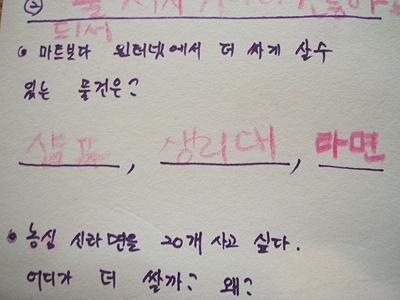 ②
되서
• 마트보다 인터넷에서 더 싸게 살수
있는 물건은?
샴푸, 생리대, 라면
• 농심 신라면을 20개 사고 싶다.
어디가 더 쌀까? 왜?